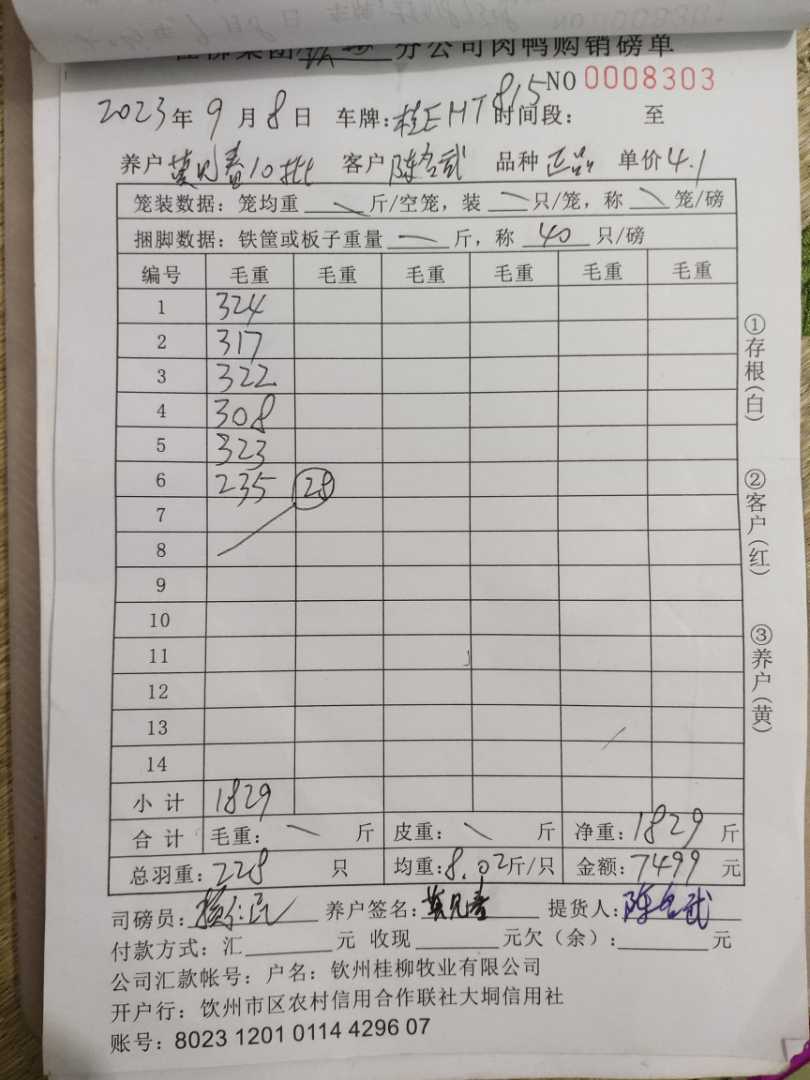 分公司肉鸭购销磅单
NO 0008303
2023年9月8日 车牌:桂EHT815 时间段: 至
养户 莫见春10批 客户 陈名武 品种 正品 单价4.1
笼装数据：笼均重 斤/空笼，装 只/笼，称 笼/磅
捆脚数据：铁筐或板子重量 斤，称 40 只/磅
编号 毛重 毛重 毛重 毛重 毛重 毛重
1 324
2 317
3 322
4 308
5 323
6 235 28
7
8
9
10
11
12
13
14
小计 1829
合计 毛重: 斤 皮重: 斤 净重:1829斤
总羽重:228 只 均重:8.02斤/只 金额:7499元
司磅员: 养户签名:莫见春 提货人:陈名武
付款方式：汇 元 收现 元欠（余）: 元
公司汇款帐号：户名：钦州桂柳牧业有限公司
开户行：饮州市区农村信用合作联社大垌信用社
账号：8023 1201 0114 4296 07
①存根(白)
②客户(红)
③养户(黄)